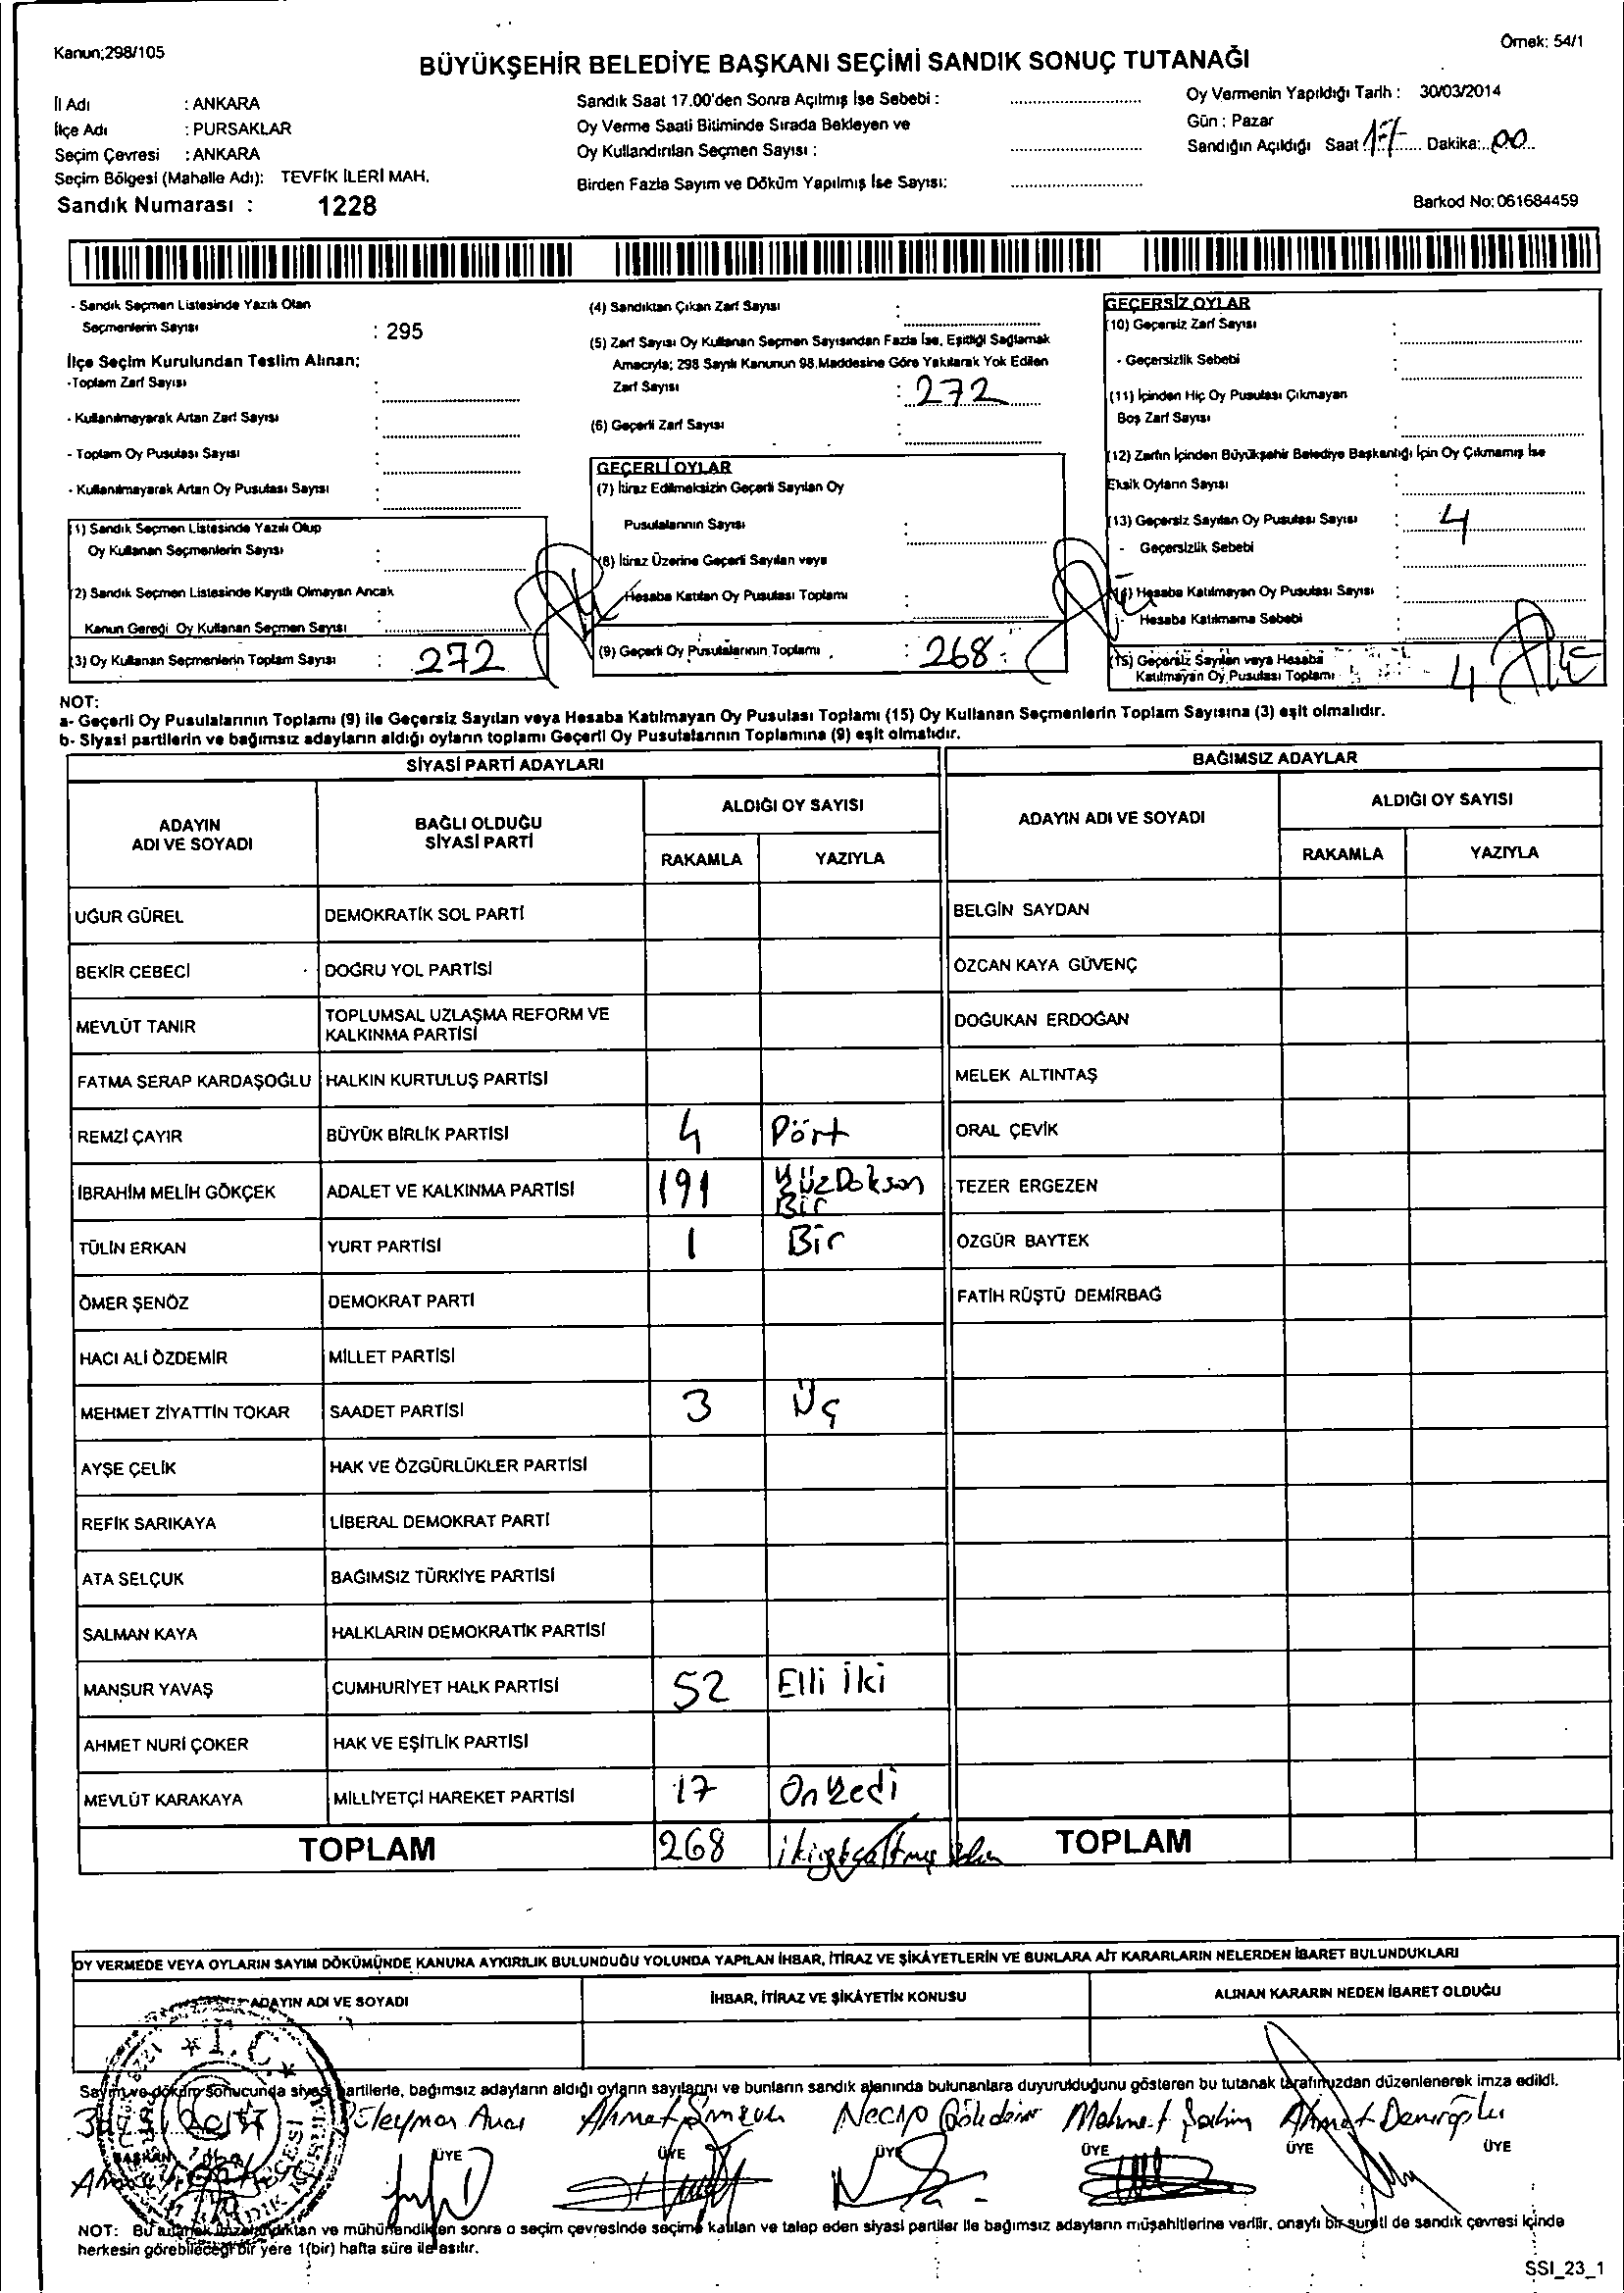 Kanun;298/105
Örnek: 54/1
BÜYÜKŞEHİR BELEDİYE BAŞKANI SEÇİMİ SANDIK SONUÇ TUTANAĞI
İl Adı : ANKARA
İlçe Adı : PURSAKLAR
Seçim Çevresi : ANKARA
Seçim Bölgesi (Mahalle Adı): TEVFİK İLERİ MAH.
Sandık Numarası : 1228
Sandık Saat 17.00'den Sonra Açılmış İse Sebebi :
Oy Verme Saati Bitiminde Sırada Bekleyen ve
Oy Kullandırılan Seçmen Sayısı :
Birden Fazla Sayım ve Döküm Yapılmış İse Sayısı:
Oy Vermenin Yapıldığı Tarih : 30/03/2014
Gün : Pazar
Sandığın Açıldığı Saat 17 Dakika: 00
Barkod No: 061684459
- Sandık Seçmen Listesinde Yazılı Olan
Seçmenlerin Sayısı : 295
İlçe Seçim Kurulundan Teslim Alınan:
-Toplam Zarf Sayısı :
- Kullanılmayarak Artan Zarf Sayısı :
- Toplam Oy Pusulası Sayısı :
- Kullanılmayarak Artan Oy Pusulası Sayısı :
(1) Sandık Seçmen Listesinde Yazılı Olup
Oy Kullanan Seçmenlerin Sayısı :
(2) Sandık Seçmen Listesinde Kayıtlı Olmayan Ancak
Kanun Gereği Oy Kullanan Seçmen Sayısı :
(3) Oy Kullanan Seçmenlerin Toplam Sayısı : 272
(4) Sandıktan Çıkan Zarf Sayısı :
(5) Zarf Sayısı Oy Kullanan Seçmen Sayısından Fazla İse, Eşitliği Sağlamak
Amacıyla; 298 Sayılı Kanunun 98.Maddesine Göre Yakılarak Yok Edilen
Zarf Sayısı : 272
(6) Geçerli Zarf Sayısı :
GEÇERLİ OYLAR
(7) İtiraz Edilmeksizin Geçerli Sayılan Oy
Pusulalarının Sayısı :
(8) İtiraz Üzerine Geçerli Sayılan veya
Hesaba Katılan Oy Pusulası Toplamı :
(9) Geçerli Oy Pusulalarının Toplamı : 268
GEÇERSİZ OYLAR
(10) Geçersiz Zarf Sayısı :
- Geçersizlik Sebebi :
(11) İçinden Hiç Oy Pusulası Çıkmayan
Boş Zarf Sayısı :
(12) Zarfın İçinden Büyükşehir Belediye Başkanlığı İçin Oy Çıkmamış İse
Eksik Oyların Sayısı :
(13) Geçersiz Sayılan Oy Pusulası Sayısı : 4
- Geçersizlik Sebebi :
(14) Hesaba Katılmayan Oy Pusulası Sayısı :
- Hesaba Katılmama Sebebi :
(15) Geçersiz Sayılan veya Hesaba
Katılmayan Oy Pusulası Toplamı 4
NOT:
a- Geçerli Oy Pusulalarının Toplamı (9) ile Geçersiz Sayılan veya Hesaba Katılmayan Oy Pusulası Toplamı (15) Oy Kullanan Seçmenlerin Toplam Sayısına (3) eşit olmalıdır.
b- Siyasi partilerin ve bağımsız adayların aldığı oyların toplamı Geçerli Oy Pusulalarının Toplamına (9) eşit olmalıdır.
SİYASİ PARTİ ADAYLARI BAĞIMSIZ ADAYLAR
ADAYIN ADI VE SOYADI BAĞLI OLDUĞU SİYASİ PARTİ ALDIĞI OY SAYISI ADAYIN ADI VE SOYADI ALDIĞI OY SAYISI
RAKAMLA YAZIYLA RAKAMLA YAZIYLA
UĞUR GÜREL DEMOKRATİK SOL PARTİ BELGİN SAYDAN
BEKİR CEBECİ DOĞRU YOL PARTİSİ ÖZCAN KAYA GÜVENÇ
MEVLÜT TANIR TOPLUMSAL UZLAŞMA REFORM VE KALKINMA PARTİSİ DOĞUKAN ERDOĞAN
FATMA SERAP KARDAŞOĞLU HALKIN KURTULUŞ PARTİSİ MELEK ALTINTAŞ
REMZİ ÇAYIR BÜYÜK BİRLİK PARTİSİ 4 Dört ORAL ÇEVİK
İBRAHİM MELİH GÖKÇEK ADALET VE KALKINMA PARTİSİ 191 YüzDoksan Bir TEZER ERGEZEN
TÜLİN ERKAN YURT PARTİSİ 1 Bir ÖZGÜR BAYTEK
ÖMER ŞENÖZ DEMOKRAT PARTİ FATİH RÜŞTÜ DEMİRBAĞ
HACI ALİ ÖZDEMİR MİLLET PARTİSİ
MEHMET ZİYATTİN TOKAR SAADET PARTİSİ 3 Üç
AYŞE ÇELİK HAK VE ÖZGÜRLÜKLER PARTİSİ
REFİK SARIKAYA LİBERAL DEMOKRAT PARTİ
ATA SELÇUK BAĞIMSIZ TÜRKİYE PARTİSİ
SALMAN KAYA HALKLARIN DEMOKRATİK PARTİSİ
MANSUR YAVAŞ CUMHURİYET HALK PARTİSİ 52 Elli İki
AHMET NURİ ÇOKER HAK VE EŞİTLİK PARTİSİ
MEVLÜT KARAKAYA MİLLİYETÇİ HAREKET PARTİSİ 17 On Yedi
TOPLAM 268 TOPLAM
OY VERMEDE VEYA OYLARIN SAYIM DÖKÜMÜNDE KANUNA AYKIRILIK BULUNDUĞU YOLUNDA YAPILAN İHBAR, İTİRAZ VE ŞİKÂYETLERİN VE BUNLARA AİT KARARLARIN NELERDEN İBARET BULUNDUKLARI
ADAYIN ADI VE SOYADI İHBAR, İTİRAZ VE ŞİKÂYETİN KONUSU ALINAN KARARIN NEDEN İBARET OLDUĞU
T.C.
Sayım ve döküm sonucunda siyasi partilerle, bağımsız adayların aldığı oyların sayılarını ve bunların sandık alanında bulunanlara duyurulduğunu gösteren bu tutanak tarafımızdan düzenlenerek imza edildi.
Süleyman Ahmet Necip Mehmet Şahin Ahmet Demiroğlu
BAŞKAN ÜYE ÜYE ÜYE ÜYE ÜYE ÜYE
NOT: Bu tutanak imzalandıktan ve mühürlendikten sonra o seçim çevresinde seçime katılan ve talep eden siyasi partiler ile bağımsız adayların müşahitlerine verilir, onaylı bir sureti de sandık çevresi içinde
herkesin görebileceği bir yere 1(bir) hafta süre ile asılır.
SSI_23_1